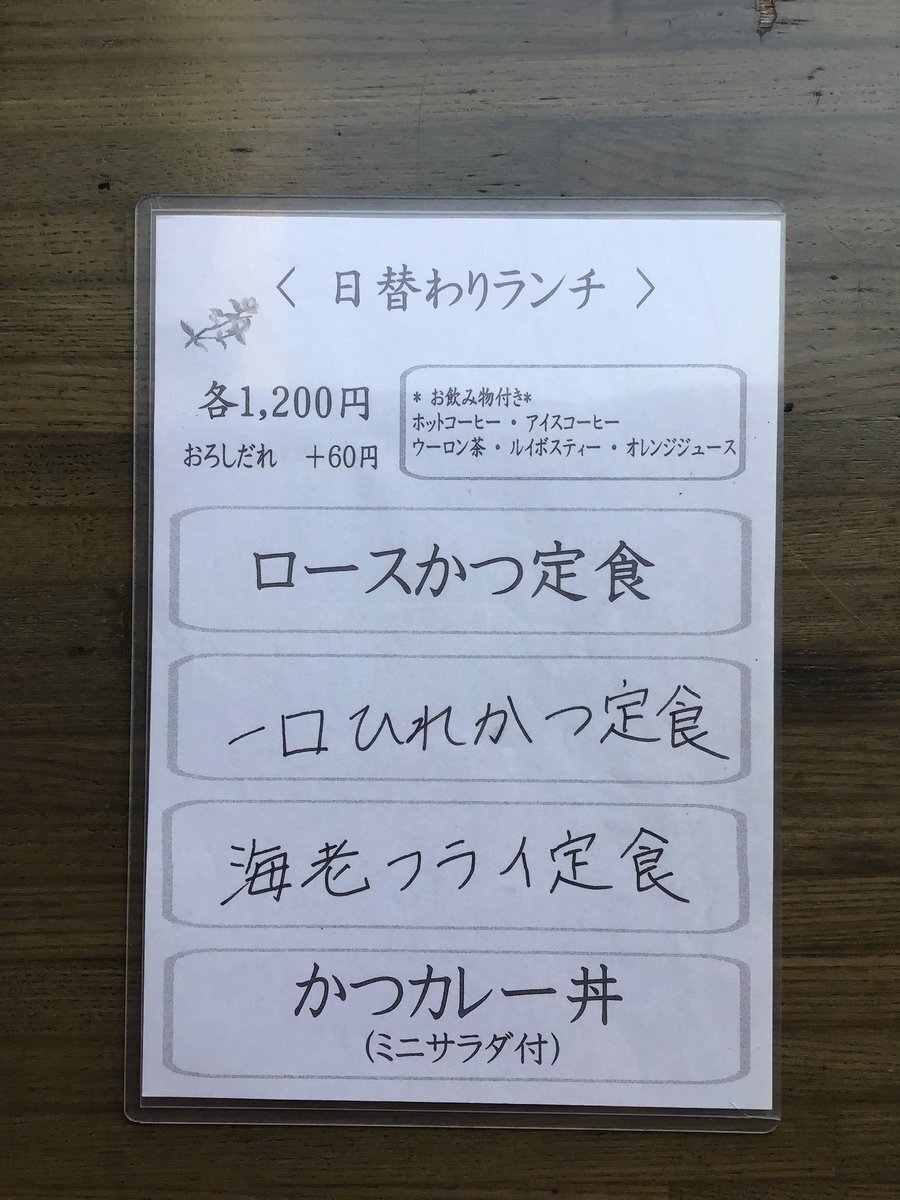 〈 日替わりランチ 〉
各1,200円
おろしだれ +60円
* お飲み物付き*
ホットコーヒー・アイスコーヒー
ウーロン茶・ルイボスティー・オレンジジュース
ロースかつ定食
一口ひれかつ定食
海老フライ定食
かつカレー丼
(ミニサラダ付)